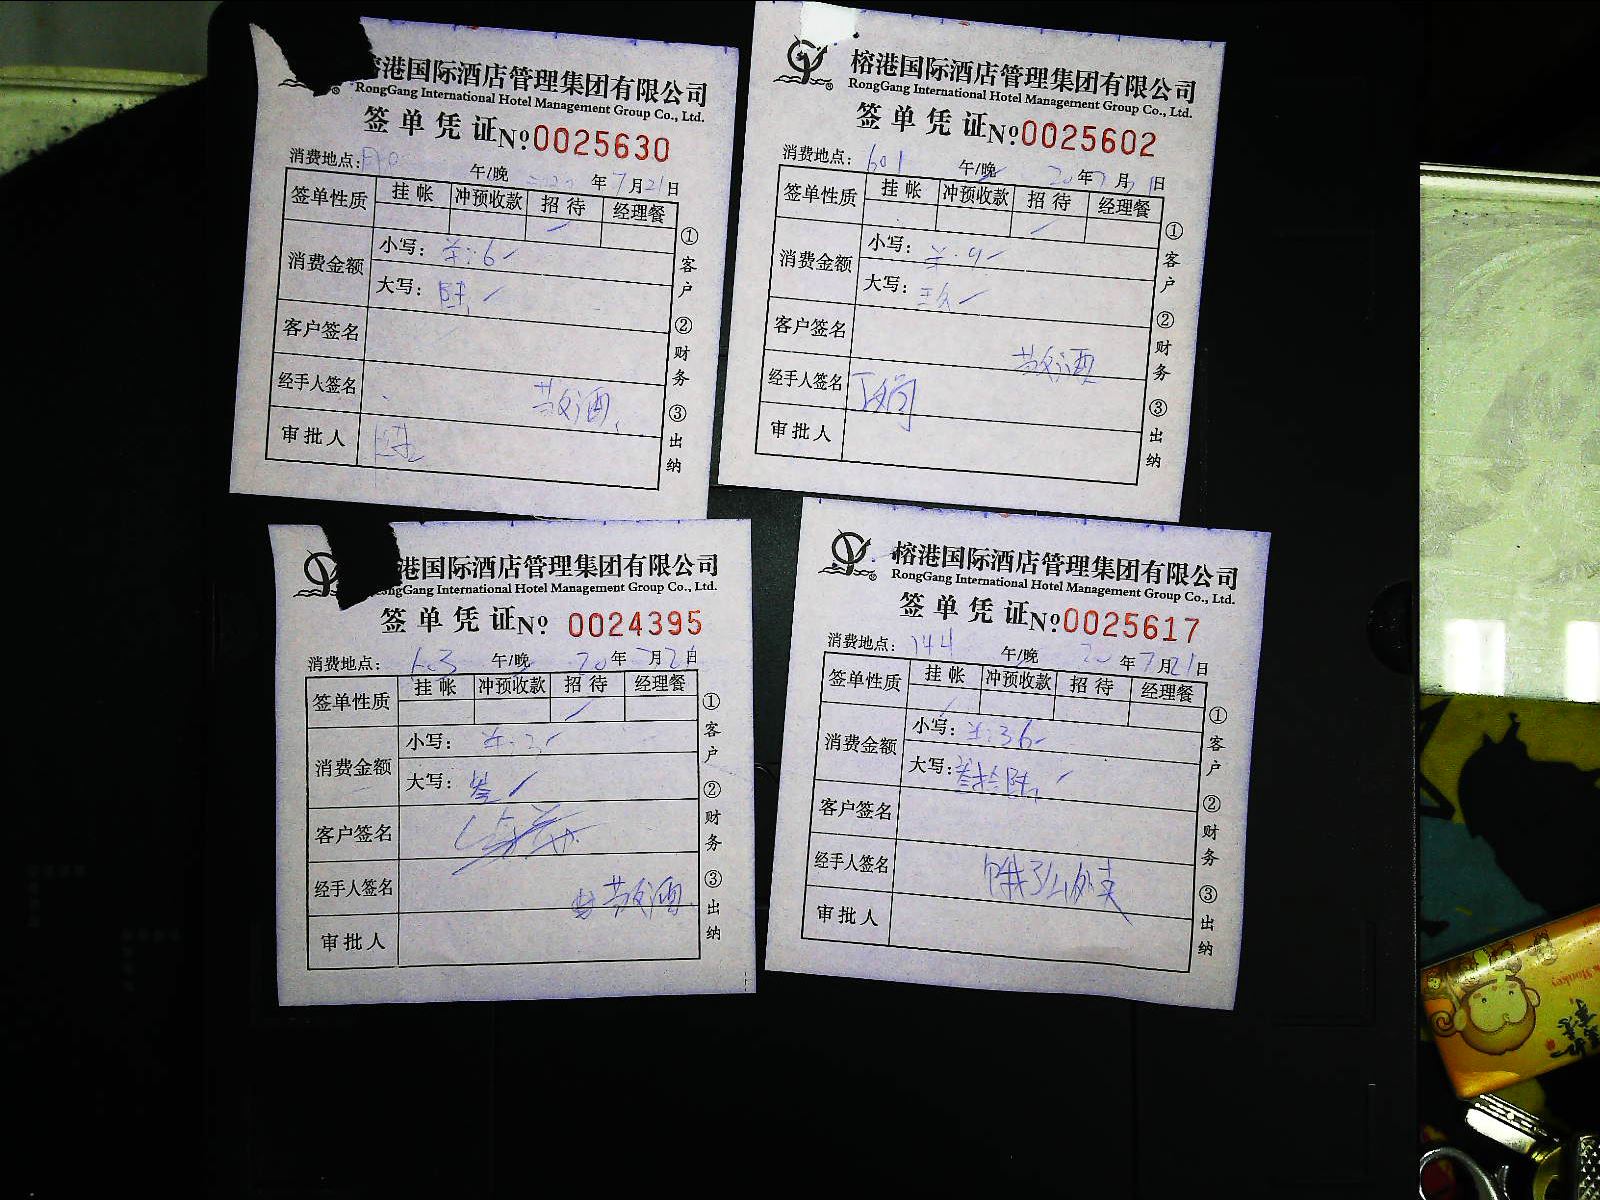 港国际酒店管理集团有限公司
RongGang International Hotel Management Group Co., Ltd.
签单凭证 № 0025630
消费地点: 午/晚 年7月21日
签单性质 挂帐 冲预收款 招待 经理餐
消费金额 小写: 羊:6
大写: 陆
客户签名
经手人签名 敬酒
审批人
①客户 ②财务 ③出纳
榕港国际酒店管理集团有限公司
RongGang International Hotel Management Group Co., Ltd.
签单凭证 № 0025602
消费地点: 601 午/晚 20年7月21日
签单性质 挂帐 冲预收款 招待 经理餐
消费金额 小写: 羊:9
大写: 玖
客户签名 敬酒
经手人签名
审批人
①客户 ②财务 ③出纳
港国际酒店管理集团有限公司
ongGang International Hotel Management Group Co., Ltd.
签单凭证 № 0024395
消费地点: 午/晚 20年7月21日
签单性质 挂帐 冲预收款 招待 经理餐
消费金额 小写: 羊:3
大写: 叁
客户签名
经手人签名 敬酒
审批人
①客户 ②财务 ③出纳
榕港国际酒店管理集团有限公司
RongGang International Hotel Management Group Co., Ltd.
签单凭证 № 0025617
消费地点: 144 午/晚 20年7月21日
签单性质 挂帐 冲预收款 招待 经理餐
消费金额 小写: 羊:36
大写: 叁拾陆
客户签名
经手人签名 饿了么外卖
审批人
①客户 ②财务 ③出纳